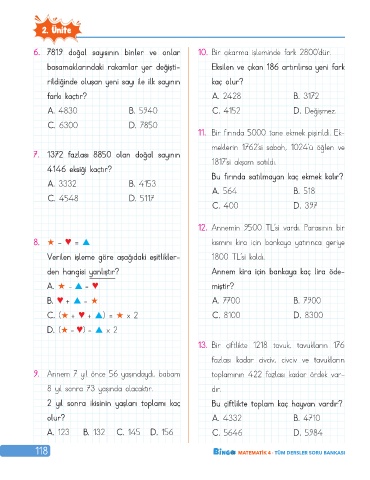 2. Ünite
6. 7819 doğal sayısının binler ve onlar
basamaklarındaki rakamlar yer değişti-
rildiğinde oluşan yeni sayı ile ilk sayının
farkı kaçtır?
A. 4830 B. 5940
C. 6300 D. 7850
7. 1372 fazlası 8850 olan doğal sayının
4146 eksiği kaçtır?
A. 3332 B. 4153
C. 4548 D. 5117
8. ★ - ♥ = ▲
Verilen işleme göre aşağıdaki eşitlikler-
den hangisi yanlıştır?
A. ★ - ▲ = ♥
B. ♥ + ▲ = ★
C. (★ + ♥ + ▲) = ★ x 2
D. (★ - ♥) = ▲ x 2
9. Annem 7 yıl önce 56 yaşındaydı, babam
8 yıl sonra 73 yaşında olacaktır.
2 yıl sonra ikisinin yaşları toplamı kaç
olur?
A. 123 B. 132 C. 145 D. 156
10. Bir çıkarma işleminde fark 2800'dür.
Eksilen ve çıkan 186 artırılırsa yeni fark
kaç olur?
A. 2428 B. 3172
C. 4152 D. Değişmez.
11. Bir fırında 5000 tane ekmek pişirildi. Ek-
meklerin 1762'si sabah, 1024'ü öğlen ve
1817'si akşam satıldı.
Bu fırında satılmayan kaç ekmek kalır?
A. 564 B. 518
C. 400 D. 397
12. Annemin 9500 TL'si vardı. Parasının bir
kısmını kira için bankaya yatırınca geriye
1800 TL'si kaldı.
Annem kira için bankaya kaç lira öde-
miştir?
A. 7700 B. 7900
C. 8100 D. 8300
13. Bir çiftlikte 1218 tavuk, tavukların 176
fazlası kadar civciv, civciv ve tavukların
toplamının 422 fazlası kadar ördek var-
dır.
Bu çiftlikte toplam kaç hayvan vardır?
A. 4332 B. 4710
C. 5646 D. 5984
118
BiNGO MATEMATİK 4 - TÜM DERSLER SORU BANKASI